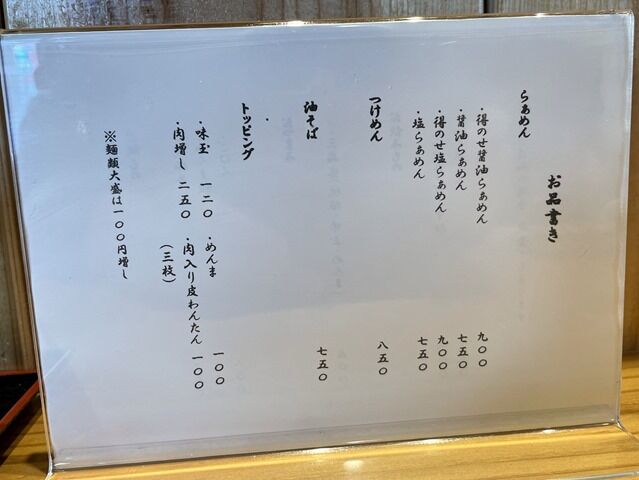 お品書き
らぁめん
・得のせ醤油らぁめん 九〇〇
・醤油らぁめん 七五〇
・得のせ塩らぁめん 九〇〇
・塩らぁめん 七五〇
つけめん 八五〇
油そば 七五〇
トッピング
・味玉 一二〇 ・めんま 一〇〇
・肉増し 二五〇 ・肉入り皮わんたん 一〇〇
(三枚)
※麺類大盛は一〇〇円増し